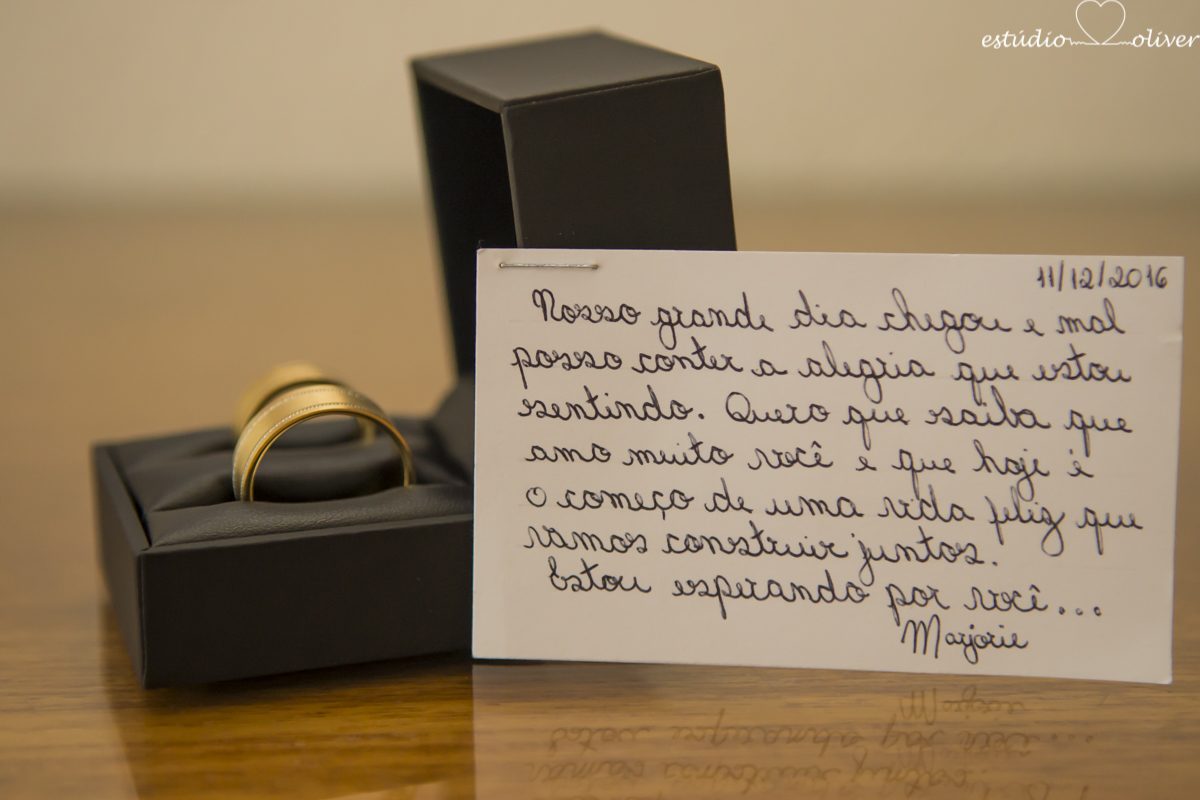 estúdio oliver
11/12/2016
Nosso grande dia chegou e mal
posso conter a alegria que estou
sentindo. Quero que saiba que
amo muito você e que hoje é
o começo de uma vida feliz que
vamos construir juntos.
Estou esperando por você...
Marjorie